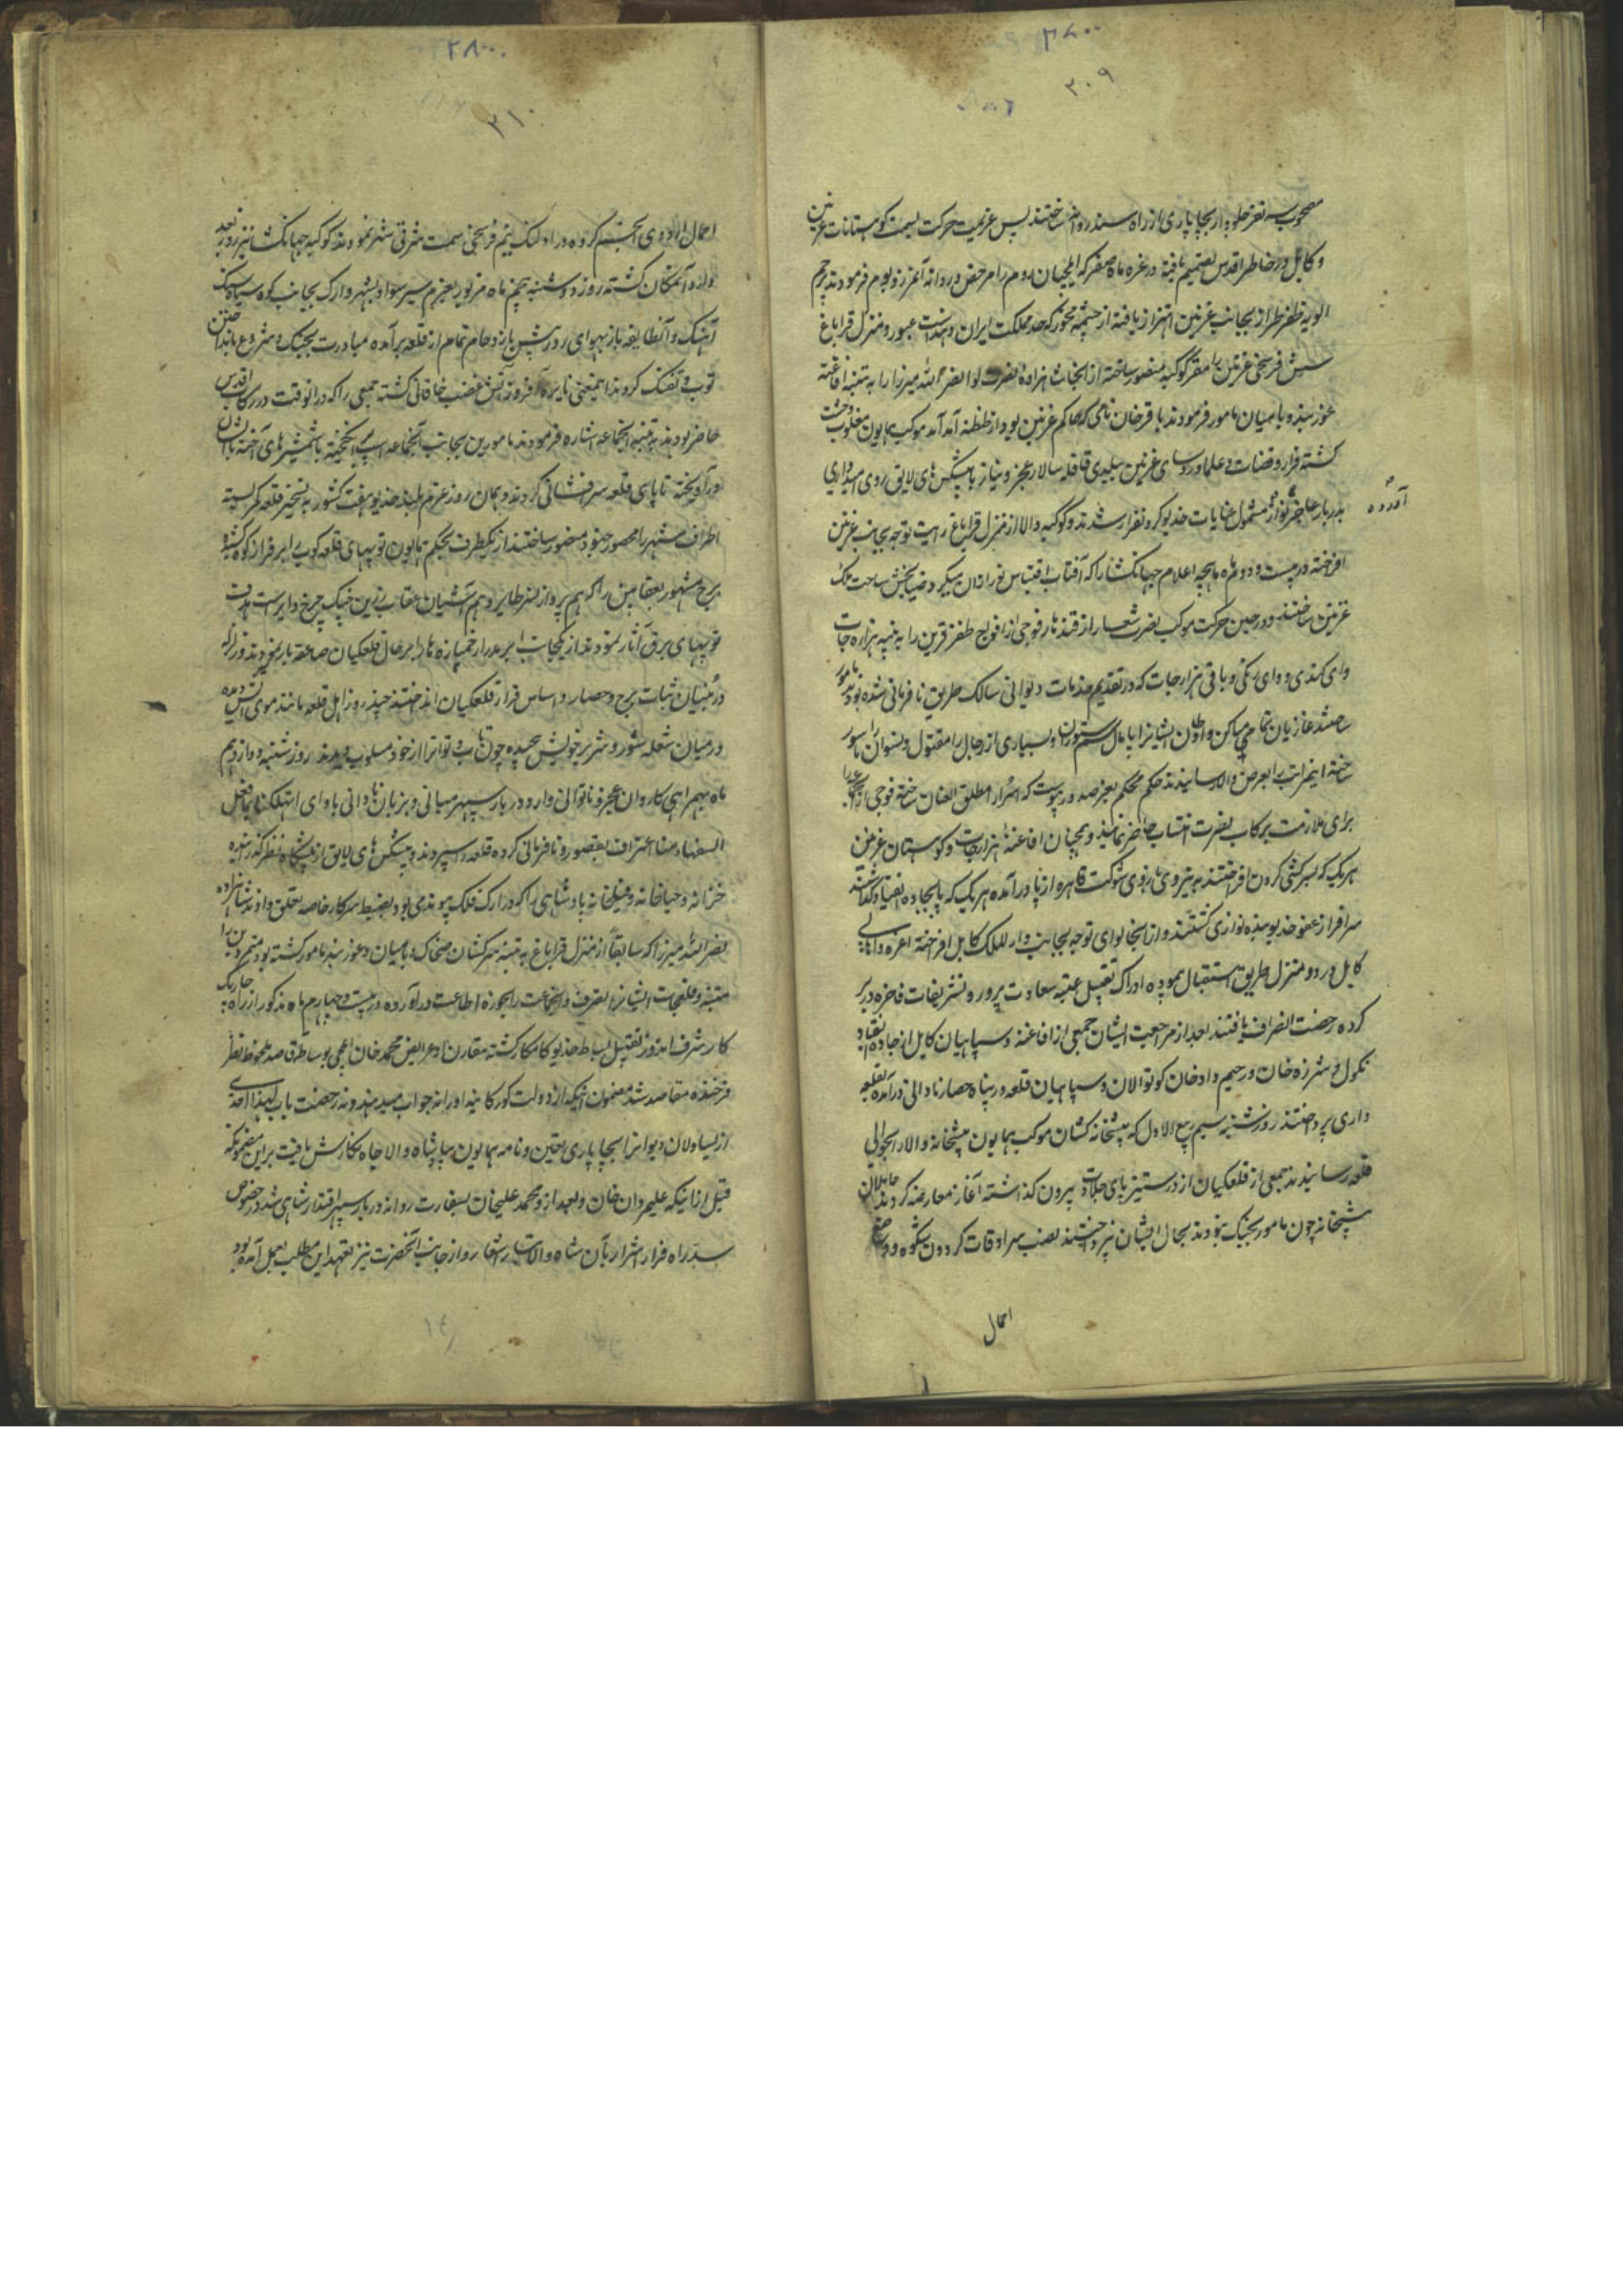 ۳۸۰۰
۳۰۹
مصحوب سه نفر جلودار بچاپاری از راه سند روانه ساختند پس عزیمت حرکت بسمت کوهستانات غزنین
و کابل در خاطر اقدس تصمیم یافته در غره ماه صفر که ایلچیان روم را مرخص و روانه آنمرز و بوم فرمودند پرچم
الویه ظفر طراز بجانب غزنین اهتزاز یافته از چشمه مخور که حد مملکت ایران و هند است عبور و منزل قراباغ
شش فرسخی غزنین را مقر کوکبه منصور ساخته از انجا شاهزاده نصرت لوا نصر الله میرزا را به تنبیه افاغنه
غوربند و بامیان مامور فرمودند باقر خان نامی که حاکم غزنین بود از طنطنه آمد آمد موکب همایون مغلوب وحشت
کشته فرار و قضات و علما و روسای غزنین ببلدی قافله سالار عجز و نیاز با پیشکش های لایق روی امیدواری
بدربار عاجز نواز آورده مشمول عنایات خدیو کردون فر شدند و کوکبه والا از منزل قراباغ رایت توجه بجانب غزنین
افراخته در بیست و دوم ماه ماهچه اعلام جهانکشا را که آفتاب اقتباس نور از آن میکرد ضیا بخش ساحت ملک
غزنین ساختند و در حین حرکت موکب نصرت شعار از قندهار فوجی از افواج ظفر قرین را به تنبیه هزاره جات
وای کندی و وای زنکی و باقی هزارجات که در تقدیم خدمات دیوانی سالک طریق نافرمانی شده بودند مامور
ساختند غازیان تمامی مساکن و اوطان ایشانرا پامال سم ستوران و بسیاری از رجال را مقتول و نسوان را اسور
ساخته اینمراتب را بعرض والا رسانیدند حکم محکم بعز صدور پیوست که اسرا را مطلق العنان ساخته فوجی از آنجماعه را
برای ملازمت برکاب نصرت انتساب حاضر نمایند و همچنان افاغنه هزارجات و کوهستان غزنین
هر یک که بسرکشی کردن افراختند به نیروی بازوی شوکت قاهره از پا درآمده هر یک که پا بجاده انقیاد گذاشتند
سرافراز عفو خدیو بنده نوازی کشتند و از انجا لوای توجه بجانب دار الملک کابل افراخته اعزه و اهالی
کابل در دو منزل طریق استقبال پیموده ادراک تقبیل عتبه سعادت پرور و تشریفات فاخره در بر
کرده رخصت انصراف یافتند بعد از مراجعت ایشان جمعی از افاغنه و سپاهیان کابل از جاده انقیاد
نکول و شرزه خان و رحیم داد خان کوتوالان و سپاهیان قلعه در پناه حصار نادانی درآمده بقلعه
داری پرداختند روز شنبه سیم ربیع الاول که پیشخانه کشان موکب همایون پیشخانه والا را بحوالی
قلعه رسانیدند جمعی از قلعکیان از در ستیز پای جلادت بیرون گذاشته آغاز معارضه کردند حاملان
پیشخانه چون مامور بجنک نبودند بحال ایشان نپرداختند نصب سرادقات کردون شکوه و وضع
احمال
۳۸۰۰
۳۱۰
احمال اردوی انجم کروه در اولنک نیم فرسخی سمت شرقی شهر نمودند کوکبه جهانکشا نیز روز بعد
وارد آنمکان کشته روز دوشنبه پنجم ماه مزبور بعزم سیر سواد شهر و ارک بجانب کوه سیاه سنک
آهنک و آنطایفه باز بهوای روز پیش با ازدحام تمام از قلعه برآمده مبادرت بجنک و شروع بانداختن
توپ و تفنک کردند اینمعنی نایره افروز آتش غضب خاقانی کشته جمعی را که در انوقت در رکاب اقدس
حاضر بودند به تنبیه آنجماعه اشاره فرمودند مامورین بجانب آنجماعه اسپ برانکیخته با شمشیرهای آخته بایشان
درآویخته تا پای قلعه سرافشانی کردند و همان روز عزم بلند خدیو هفت کشور به تسخیر قلعه کمر بسته
اطراف شهر را محصور جنود منصور ساختند از یکطرف بحکم همایون توپهای قلعه کوب را بر فراز کوه کشیده
برج مشهور بعقابین را که هم پرواز نسر طایر و هم آشیان عقاب زرین چنک چرخ دایر است هدف
توپهای برق آثار نمودند از یکجانب
در بنیان ثبات برج و حصار و اساس قرار قلعکیان انداختند چند روز اهل قلعه مانند موی آتش دیده
در میان شعله شور و شر بر خویش پیچیده چون تاب و توانرا از خود مسلوب دیدند روز شنبه دوازدهم
ماه بهمراهی کاروان عجز و ناتوانی وارد دربار سپهر مبانی و بزبان نادانی بادای اتهلکنا بما فعل
السفهاء منا اعتراف بقصور و نافرمانی کرده قلعه را سپردند و پیشکش های لایق از پیشکاه نظر گذرانیده
خزانه و جباخانه و فیلخانه پادشاهی را که در ارک فلک پیوندی بود بضبط سرکار خاصه تعلق دادند شاهزاده
نصر الله میرزا که سابقاً از منزل قراباغ به تنبیه سرکشان ضحاک و بامیان و غوربند مامور کشته بود متمردین را
تنبیه و قلعجات ایشانرا بتصرف و آنجماعت را بحوزه اطاعت درآورده در بیست و چهارم ماه مذکور از راه چاریک
کار شرف اندوز تقبیل بساط خدیو کامکار کشته مقارن آن عرایض محمد خان ایلچی بوساطت قاصد ملحوظ نظر
فرخنده مقاصد شد مضمون اینکه از دولت کورکانیه او را نه جواب میدهند و نه رخصت ایاب لهذا احدی
از یساولان دیوانرا بچاپاری تعیین و نامه همایون بپادشاه والاجاه نگارش یافت بر این مضمون که
قبل از اینکه علیمردان خان و بعد از او محمد علیخان بسفارت روانه دربار سپهر اقتدار شاهی شد در خصوص
سد راه فرار اشرار بآن شاه والاتبار اشعار و از جانب آنحضرت نیز تعهد این مطلب بعمل آمده بود